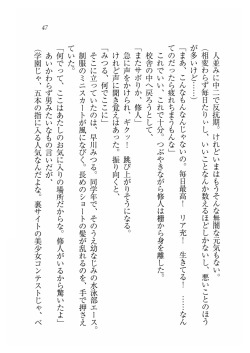 47
人並みに中二で反抗期。けれどいまはもうそんな無闇な元気もない。
（相変わらず毎日たりいし、いいことなんか数えるほどしかないし、悪いことのほうが多いけど……）
「まあ、こんなもんなんじゃないの。毎日最高！　リア充！　生きてる！　……なんてのだったら疲れちまうもんな」
これでいい、これで十分。つぶやきながら修人は身を離した。
校舎の中へ戻ろうとして、
「またサボりか、修人」
急に声をかけられ「ヴァッ」　跳び上がりそうになる。
けれど声に聞き覚えはあった。振り向くと、
「みつる、何でここに」
そこに立っていたのは、早川みつる。同学年で、そのうえ幼なじみの水泳部エース。
制服のミニスカートが風になびく。長めのショートの髪が乱れるのを、手で押さえながら、
「何でって、ここはあたしのお気に入りの場所だからな。修人がいるから驚いたよ」
あいかわらず男みたいなもの言いだが、
（学園じゃ、五本の指に入る人気なんだよな。裏サイトの美少女コンテストじゃ、ベ